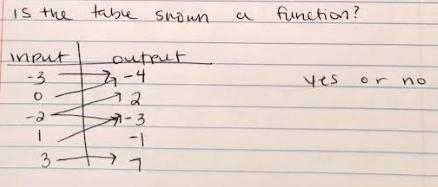 is the table shown a function?
input output
-3 -4
0 2
-2 -3
1 -1
3 7
yes or no